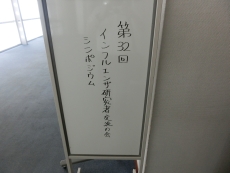 第32回
インフルエンザ研究者交流の会
シンポジウム